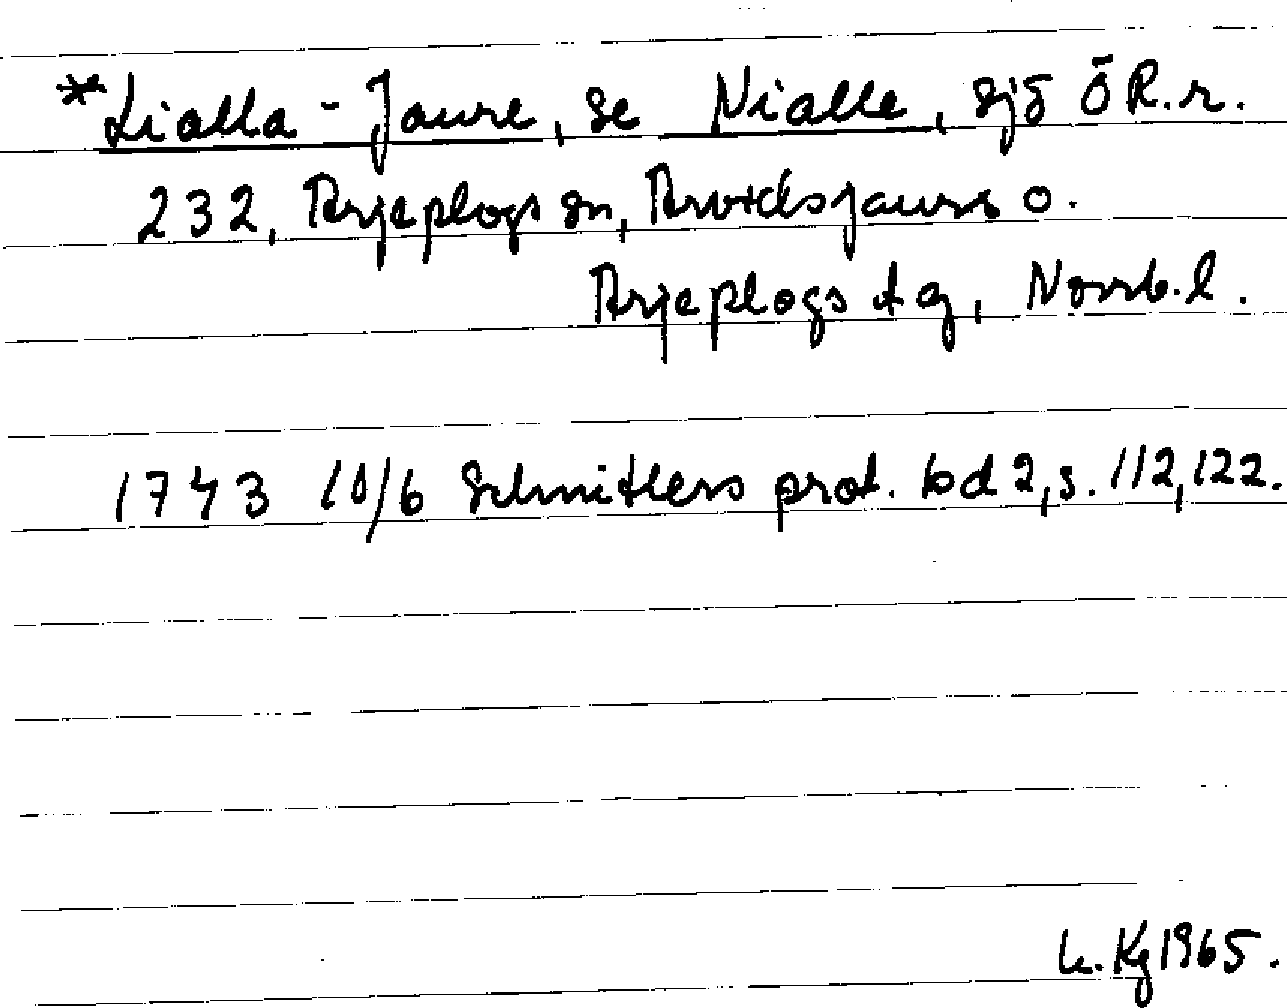 *Lialla-Jaure, se Nialle, sjö ÖR.r.
232, Arjeplogs sn, Arvidsjaurs o.
Arjeplogs tg, Norrb.l.
1743 10/6 Schnitlers prot. bd 2, s. 112, 122.
L. Kg 1965.